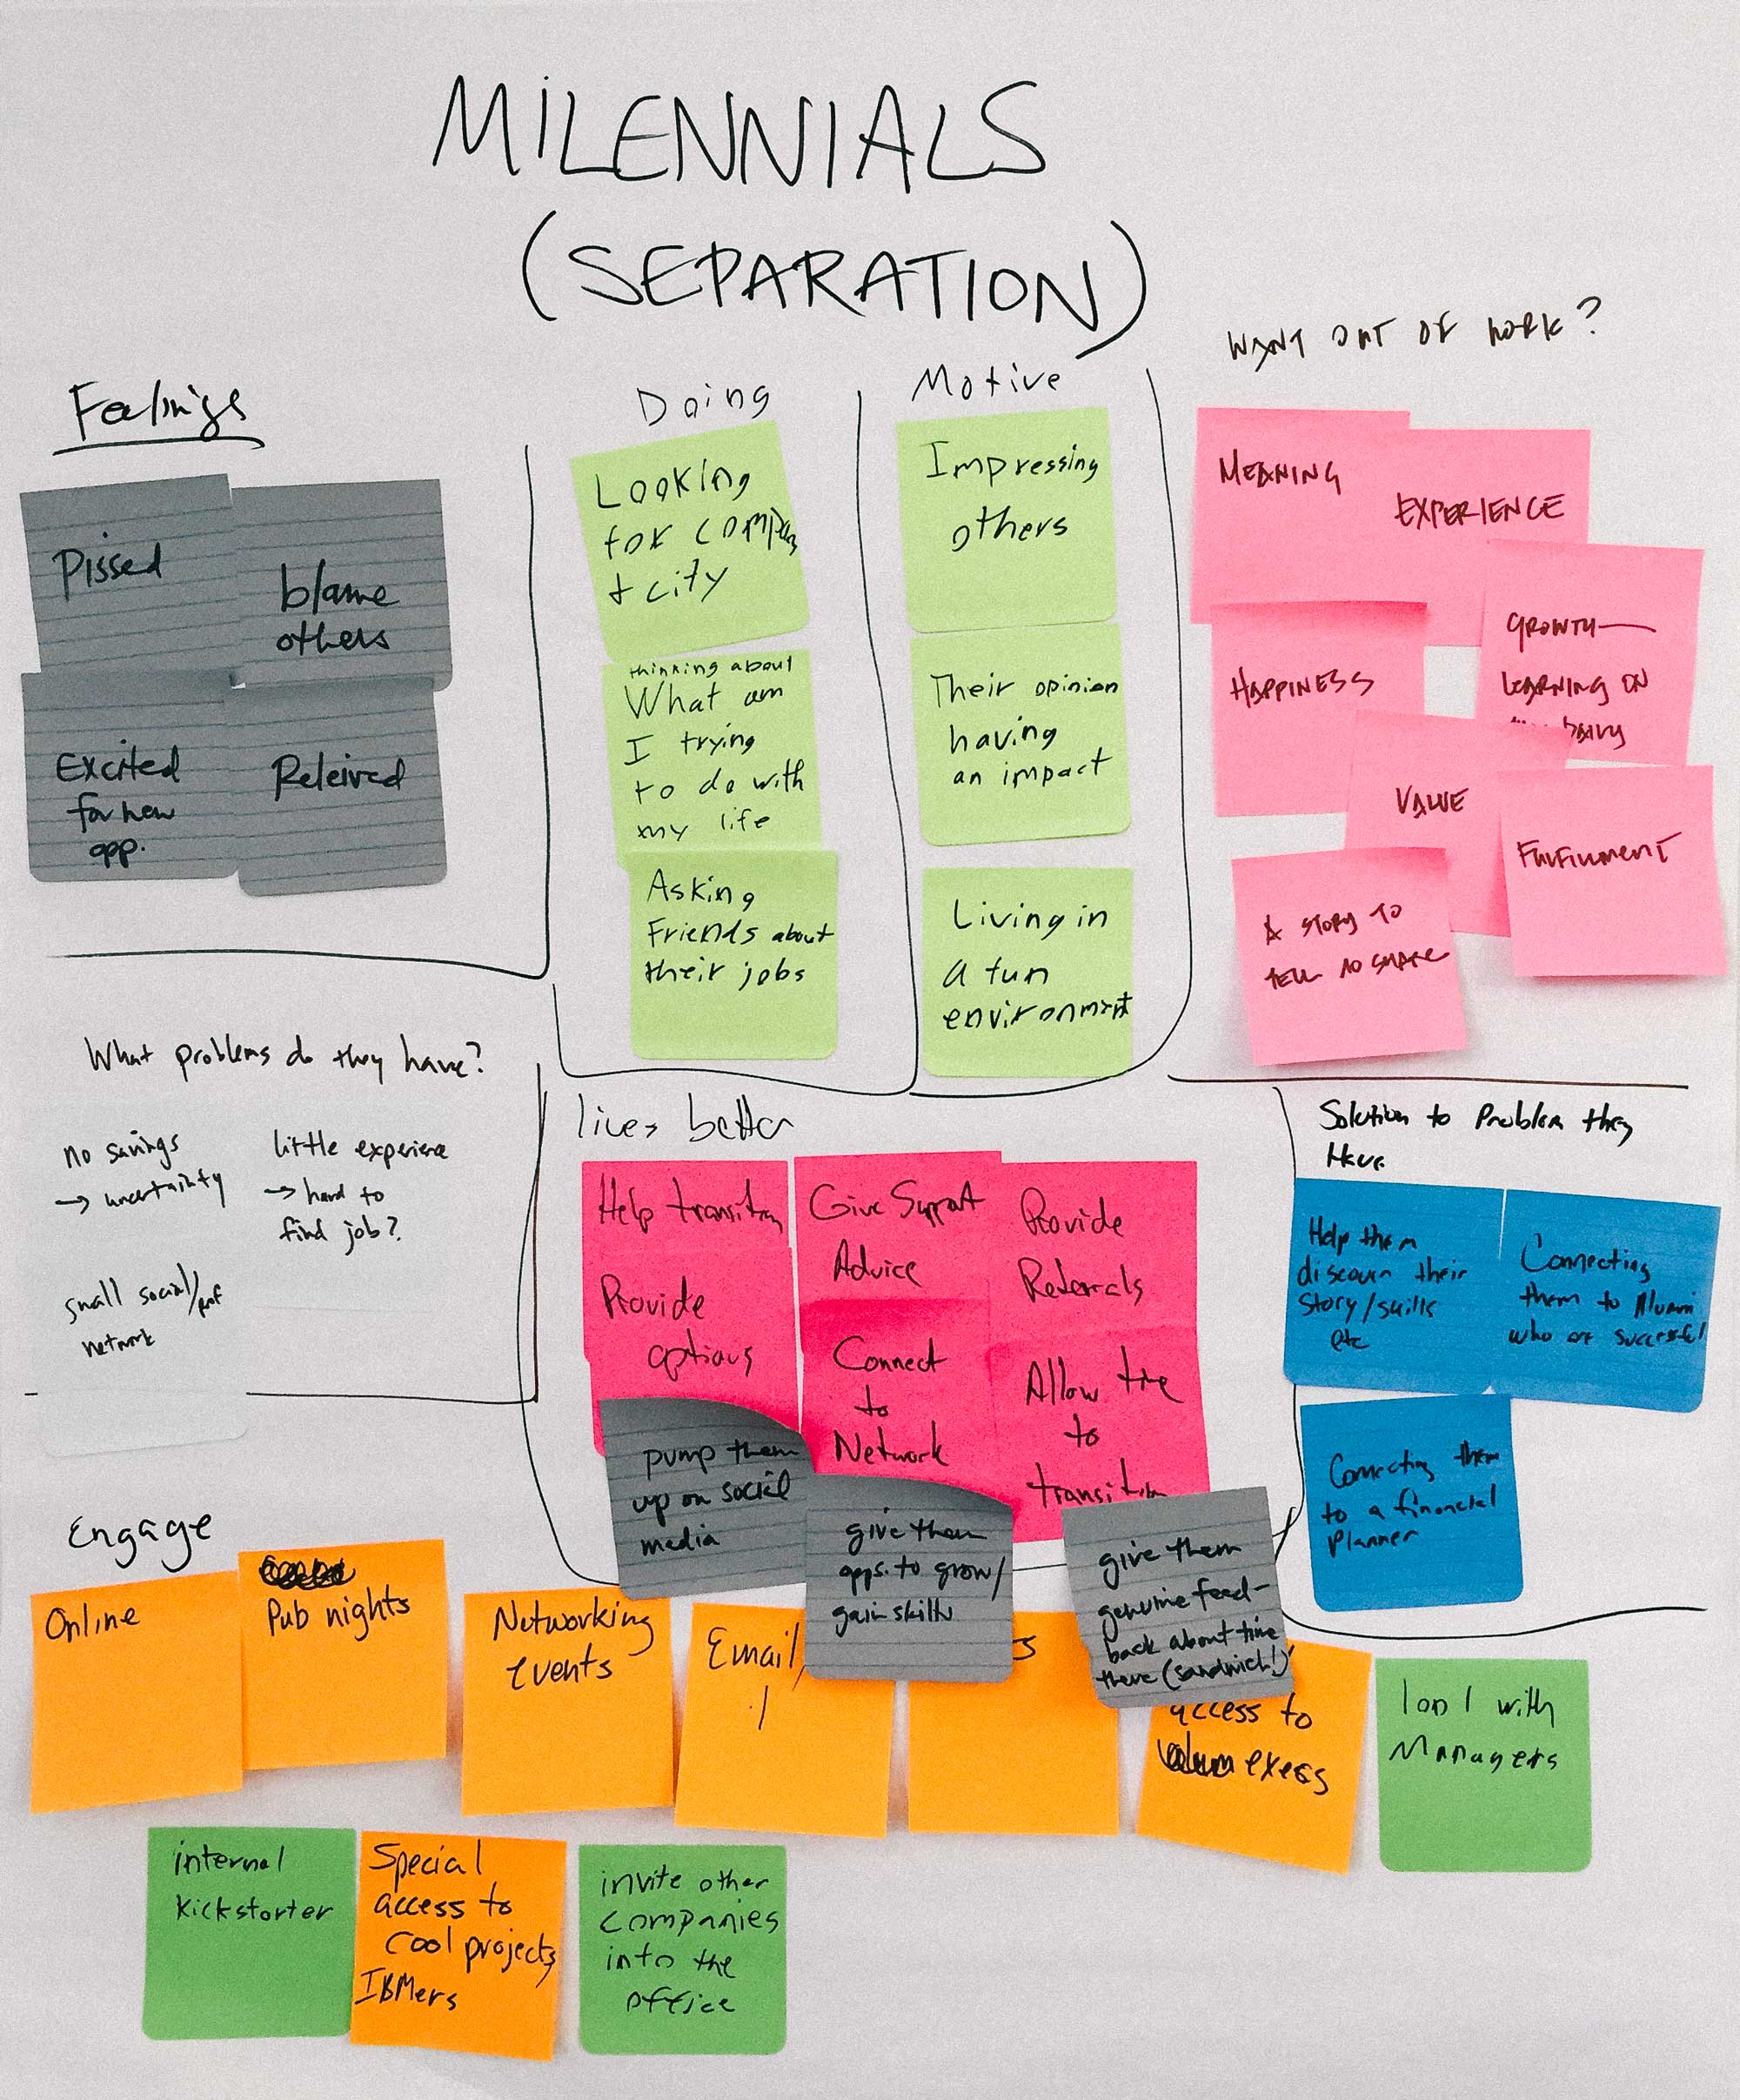 MILENNIALS
(SEPARATION)
Feelings
Pissed
blame
others
Excited
for new
opp.
Releived
Doing
Looking
for company
& city
thinking about
What am
I trying
to do with
my life
Asking
Friends about
their jobs
Motive
Impressing
others
Their opinion
having
an impact
Living in
a fun
environment
WANT OUT OF WORK?
MEANING
EXPERIENCE
HAPPINESS
GROWTH—
LEARNING ON
VALUE
FULFILLMENT
A STORY TO
TELL AND SHARE
What problems do they have?
no savings
→ uncertainty
little experience
→ hard to
find job?
small social/prof
network
lives better
Help transition
Provide
options
Give Support
Advice
Connect
to
Network
Provide
Referrals
Allow time
to
transition
pump them
up on social
media
give them
opps. to grow/
gain skills
give them
genuine feed-
back about time
there (sandwich!)
Solution to Problem they
Have
Help them
discover their
story/skills
etc
Connecting
them to Alumni
who are successful
Connecting them
to a financial
Planner
Engage
Online
Pub nights
Networking
events
Email
s
access to
execs
1 on 1 with
Managers
internal
kickstarter
Special
access to
cool projects
IBMers
invite other
companies
into the
office